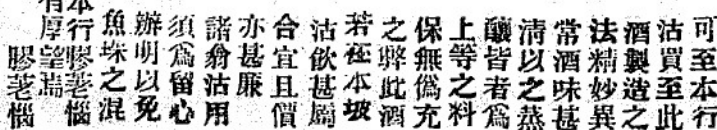 可至本行
沽買至此
酒製造之
法精妙異
常酒味甚
清以之蒸
釀皆者爲
上等之料
保無僞充
之弊此酒
若在本坡
沽飲甚屬
合宜且價
亦甚廉
諸翁沽用
須爲留心
辦明以免
魚珠之混
本行膠荖惱
有厚望焉
膠荖惱